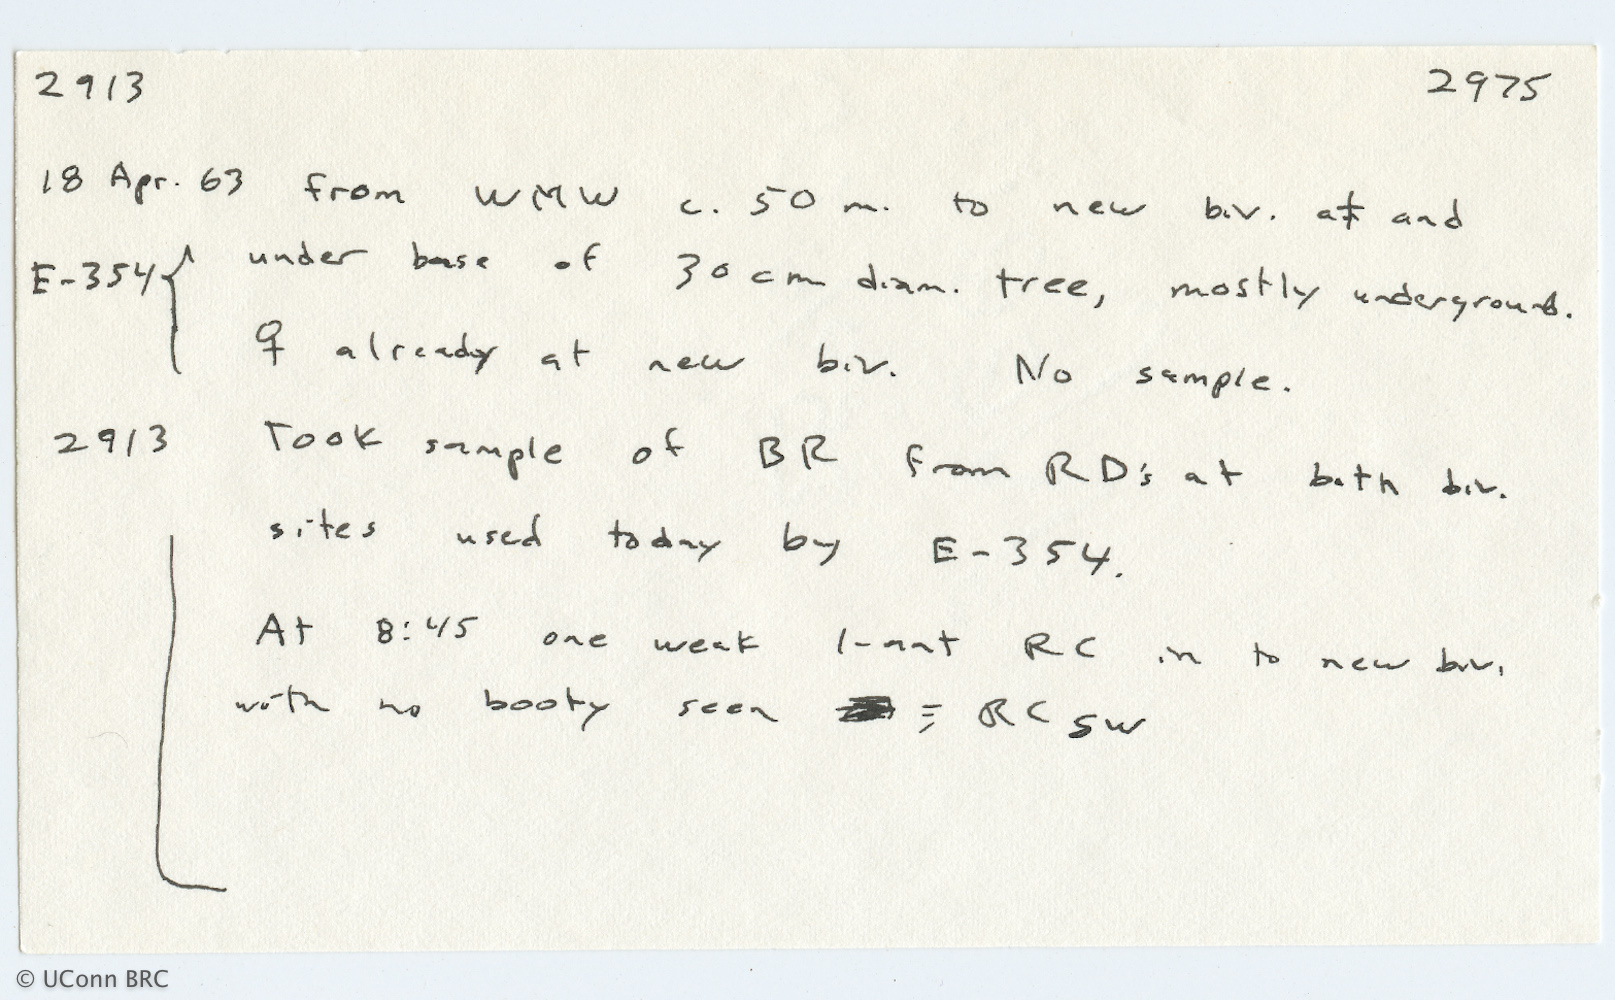 2913 2975
18 Apr. 63 From WMW c. 50 m. to new biv. at and
E-354 { under base of 30 cm diam. tree, mostly underground.
♀ already at new biv. No sample.
2913 Took sample of BR from RD's at both biv.
sites used today by E-354.
At 8:45 one weak 1-ant RC in to new biv.
with no booty seen = RC SW
© UConn BRC